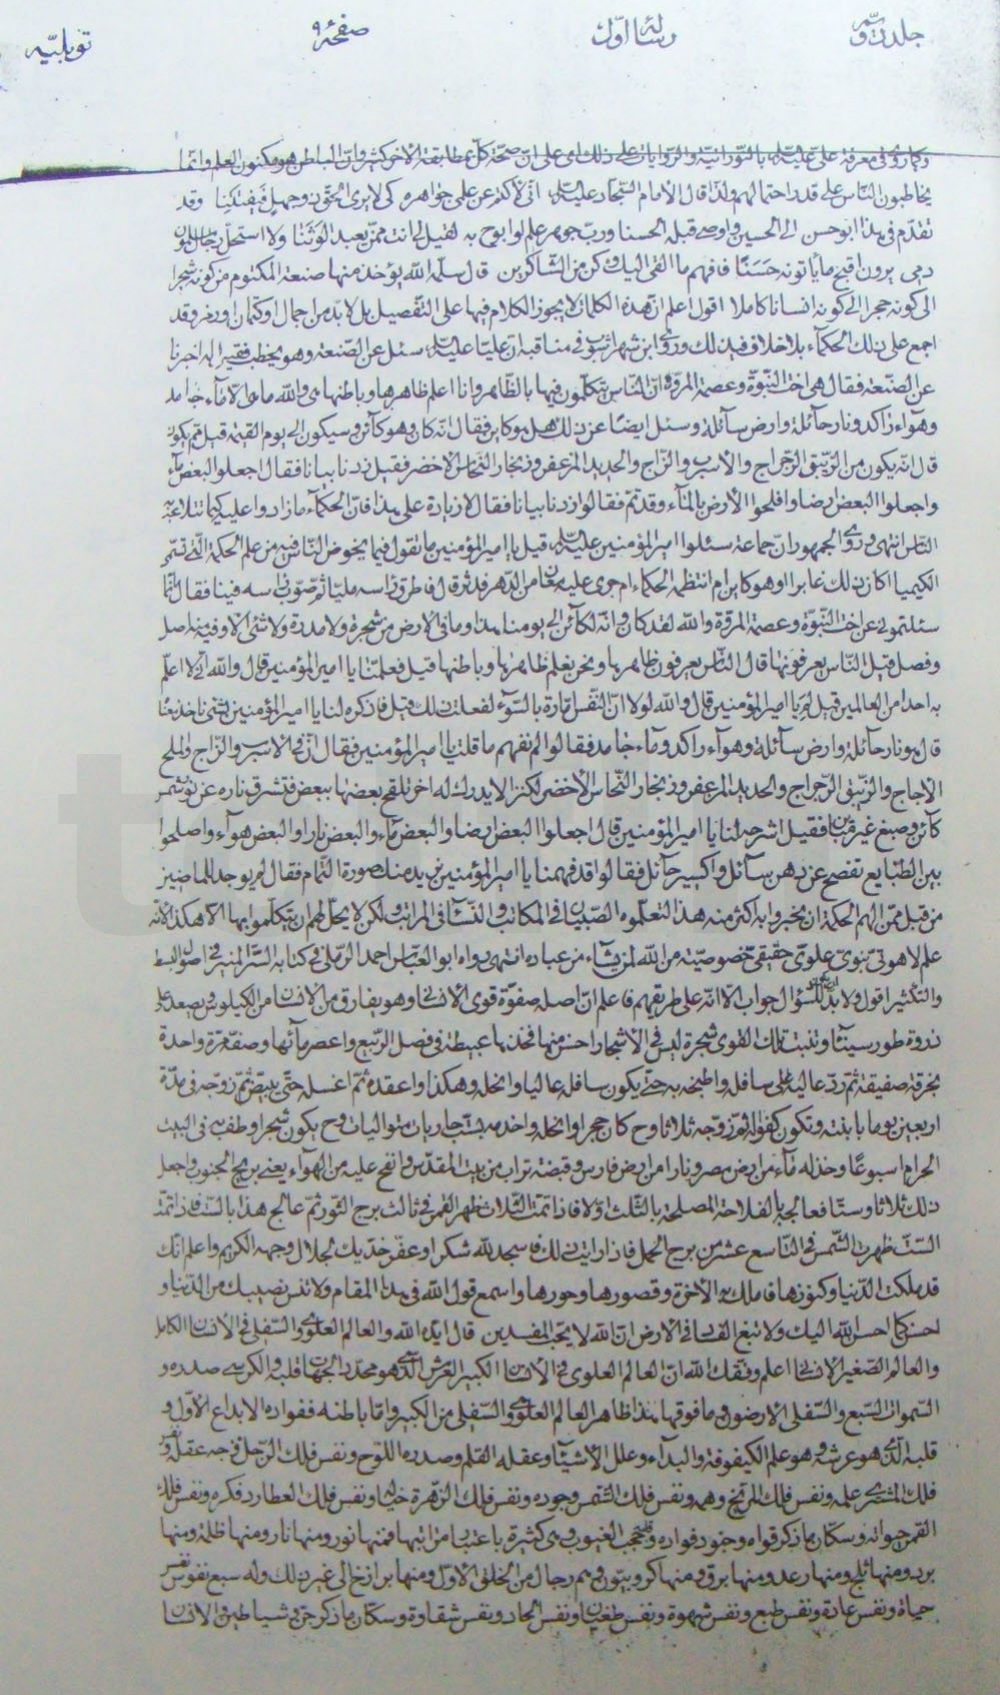 جلد دوم رسالۀ اوّل صفحۀ ۹ توبلیّه
وكما روى فى معرفة علىّ عليه السلام بالنّورانيّة والرّوايات على ذلك اى على انّ صحّة كلّ بمطابقة الاخر كثيرة وانّ الباطن هو مكنون العلم وانّما
يخاطبون النّاس على قدر احتمالهم ولذا قال الامام السّجّاد عليه السلام انّى لاكتم عن علمى جواهره كى لا يرى الحقّ ذو جهل فيفتننا وقد
تقدّم فى هذا ابو حسن الى الحسين واوصى قبله الحسنا وربّ جوهر علم لو ابوح به لقيل لى انت ممّن يعبد الوثنا ولا استحلّ رجال مسلمون
دمى يرون اقبح ما يأتونه حسنًا فافهم ما القى اليك وكن من الشّاكرين قال سلّمه اللّه يؤخذ منها صنعة المكتوم من كونه شجرا
الى كونه حجرا الى كونه انسانا كاملا اقول اعلم انّ هذه الكلمات لا يجوز الكلام فيها على التّفصيل بل لا بدّ من اجمال او كتمان او رمز وقد
اجمع على ذلك الحكمآء بلا خلاف فى ذلك وروى ابن شهراشوب فى مناقبه انّ عليّا عليه السلام سئل عن الصّنعة وهو يخطب فقيل له اخبرنا
عن الصّنعة فقال هى اخت النّبوّة وعصمة المروّة انّ النّاس يتكلّمون فيها بالظّاهر وانا اعلم ظاهرها وباطنها هى واللّه ما هى الّا مآء جامد
وهوآء راكد ونار حآئلة وارض سآئلة وسئل ايضًا عن ذلك هل هو كاين فقال انّه كان وهو كآئن وسيكون الى يوم القيمة قيل ممّ يكون
قال انّه يكون من الزّيبق الرّجراج والاسرب والزّاج والحديد المزعفر وزنجار النّحاس الاخضر فقيل زدنا بيانا فقال اجعلوا البعض مآء
واجعلوا البعض ارضا وافلحوا الارض بالمآء وقد تمّ فقالوا زدنا بيانا فقال لا زيادة على هذا فانّ الحكمآء ما زادوا عليه كيما تتلاعب به
النّاس انتهى وروى الجمهور انّ جماعة سئلوا امير المؤمنين عليه السلام قيل يا امير المؤمنين ما تقول فيما يخوض النّاس فيه من علم الحكمة الّتى تسمّى
الكيميا اكان ذلك غابرا او هو كاين ام انتظمه الحكماء ام جرى عليه معان من الدّهر فدثر قال فاطرق رأسه مليّا ثمّ صوّب رأسه فينا فقال انّما
سئلتمونى عن اخت النّبوّة وعصمة المروّة واللّه لقد كان وانّه لكآئن الى يومنا هذا وما فى الارض من شجرة ولا مدرة ولا شئ الّا وفيه منه اصل
وفصل قيل النّاس يعرفونها قال النّاس يعرفون ظاهرها ونحن نعلم ظاهرها وباطنها قيل فعلّمنا يا امير المؤمنين قال واللّه انّى لا اعلّم
به احدا من العالمين قيل لم يا امير المؤمنين قال واللّه لولا انّ النّفس امّارة بالسّوء لفعلت ذلك قيل فاذكره لنا يا امير المؤمنين بشئ ناخذ بعضه
قال هو نار حآئلة وارض سآئلة وهوآء راكد ومآء جامد فقالوا لم نفهم ما قلت يا امير المؤمنين فقال انّ فى الاسرب والزّاج والملح
الاجاج والزّيبق الرّجراج والحديد المزعفر وزنجار النّحاس الاخضر لكنزا لا يدرك له اخر تلقح بعضها ببعض فتشرق ناره عن نور شمس
كآئن وصبغ غير مباين فقيل اشرحه لنا يا امير المؤمنين قال اجعلوا البعض ارضا والبعض مآء والبعض نارا والبعض هوآء واصلحوا
بين الطّبايع تفصح عن دهن سآئل واكسير حآئل فقالوا قد فهمنا يا امير المؤمنين نريد منك صورة التّمام فقال لم يوجد للماضين
من قبل ممّن الهم الحكمة ان يخبروا به اكثر منه هذا التعلّموه الصّبيان فى المكاتب والنّسآء فى المراتب ولكن لا يحلّ لهم ان يتكلّموا بها الّا هكذا لانّه
علم لاهوتىّ نبوىّ علوىّ حقيقىّ خصوصيّة من اللّه لمن يشآء من عباده انتهى رواه ابو العبّاس احمد الرّملى فى كتابه السّرّ المنير فى اصول البسط
والتّكثير اقول ولا بدّ للسّؤال من جواب الّا انّه على طريقهم فاعلم انّ اصله صفوة قوى الانسان وهو يفارق من الانسان من الكيلوس ويصعد على
ذروة طور سينآء وتنبت تلك القوى شجرة ليس فى الاشجار احسن منها فخذها عبيطة فى فصل الرّبيع واعصر مآئها وصفّه مرّة واحدة
بخرقة صفيقة ثمّ ردّ عاليه على سافله واطبخه به حتّى يكون سافله عاليا وانخله وهكذا واعقده ثمّ اغسله حتّى يبيضّ ثمّ زوّجه فى مدّة
اربعين يوما بابنته وتكون كفوا له ثمّ زوّجه ثلاثا وح كان حجرا وانخله واخدمه بستّ جاريات متواليات وح يكون شجرا وطف به فى البيت
الحرام اسبوعًا وخذ له مآء من ارض مصر ونارا من ارض فارس وقبضة تراب من بيت المقدّس وانفخ عليه من الهوآء يعنى بريح الجنوب واجعل
ذلك ثلاثا وستّا فعالجه بالفلاحة المصلحة بالثّلث اوّلا فاذا تمّت الثّلاث ظهر القمر فى ثالث برج الثّور ثمّ عالج هذا بالستّ فاذا تمّت
الستّ ظهرت الشّمس فى التّاسع عشر من برج الحمل فاذا رايت ذلك فاسجد للّه شكرا وعفّر خدّيك لجلال وجهه الكريم واعلم انّك
قد ملكت الدّنيا وكنوزها فاملك به الاخرة وقصورها وحورها واسمع قول اللّه فى هذا المقام ولا تنس نصيبك من الدّنيا و
احسن كما احسن اللّه اليك ولا تبغ الفساد فى الارض انّ اللّه لا يحبّ المفسدين قال ايّده اللّه والعالم العلوى والسّفلى فى الانسان الكامل
والعالم الصّغير الانسانى اعلم وفّقك اللّه انّ العالم العلوى فى الانسان الكبير العرش الّذى هو محدّد الجهات قلبه والكرسى صدره و
السّموات السّبع والسّفلى الارضون وما فوقها هذا ظاهر العالم العلوى والسّفلى من الكبير وامّا باطنه ففواده الابداع الاوّل و
قلبه الّذى هو عرشه هو علم الكيفوفة والبدآء وعلل الاشيآء وعقله القلم وصدره اللّوح ونفس فلك الزّحل وجه عقله ونفس
فلك المشترى علمه ونفس فلك المرّيخ وهمه ونفس فلك الشّمس وجوده ونفس فلك الزّهرة خياله ونفس فلك العطارد فكره ونفس فلك
القمر حيواته وسكّان ما ذكر قواه وجنود فواده وحجب الغيوب وهى كثيرة باعتبار مراتبها فمنها نور ومنها نار ومنها ظلمة ومنها
برد ومنها ثلج ومنها رعد ومنها برق ومنها كروبيّون وهم رجال من الخلق الاوّل ومنها برازخ الى غير ذلك وله سبع نفوس نفس
حياة ونفس عادة ونفس طبع ونفس شهوة ونفس طغيان ونفس الحاد ونفس شقاوة وسكّان ما ذكر جنّ وشياطين والانسان